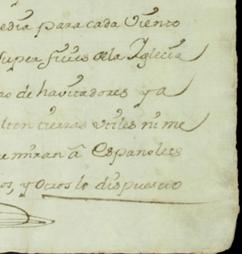 edia para cada Viento
super ficies de la Yglecia
ro de havitadores y a
lten tierras utiles ni me
miran â Españoles
os, y Otros lo dispuesto